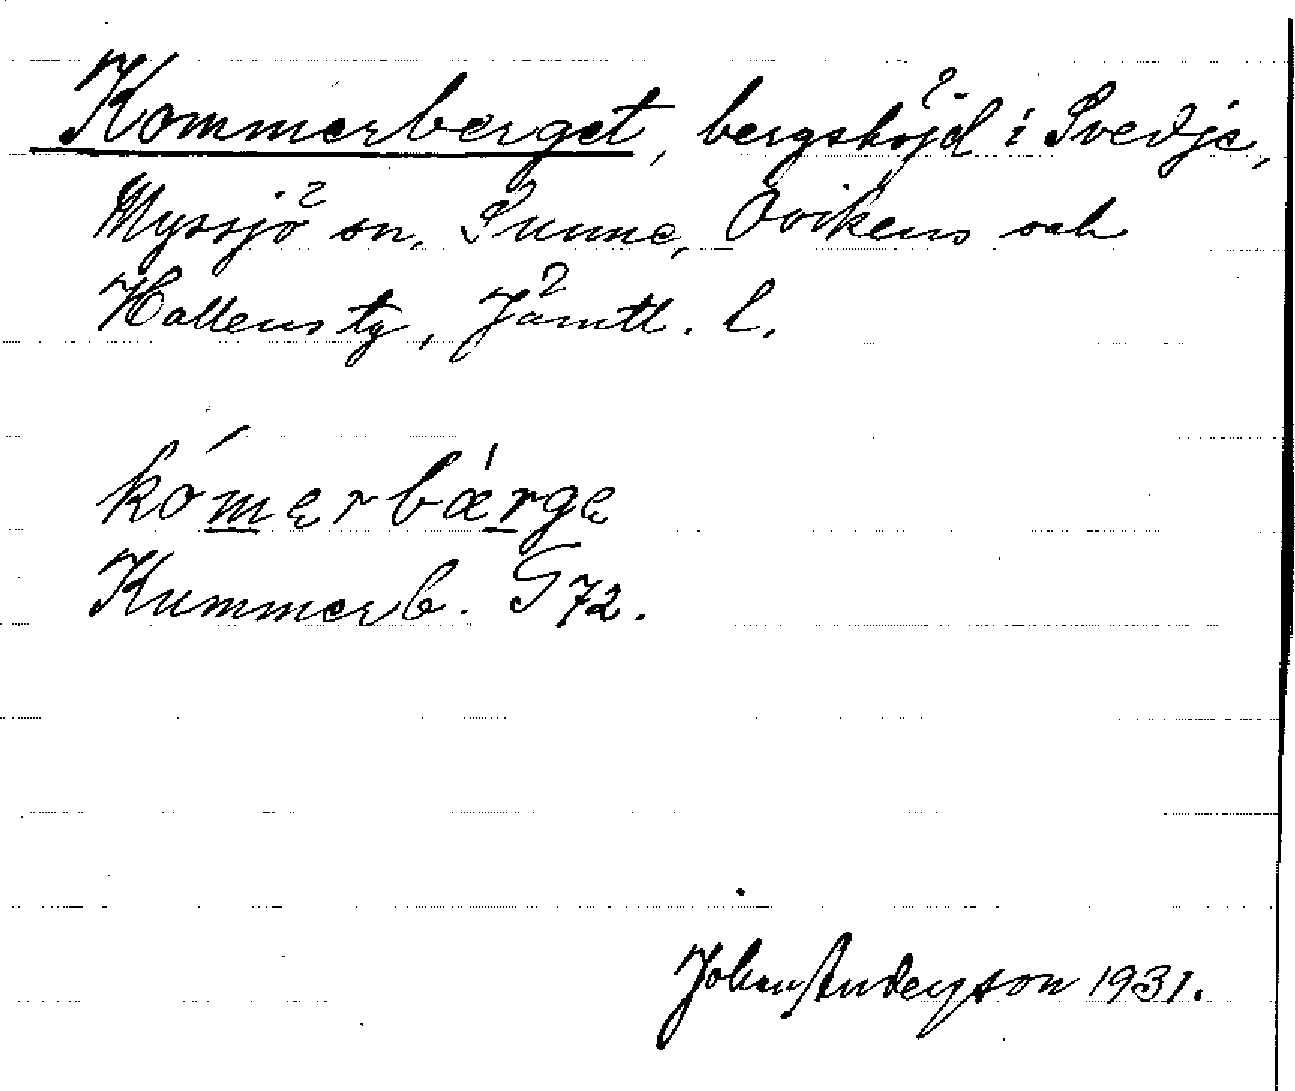 Kommerberget, bergshöjd i Svedje,
Myssjö sn, Sunne, Ovikens och
Hallens tg, Jämtl. l.
kómerbárge
Kummerb. G 72.
Johan Anderson 1931.